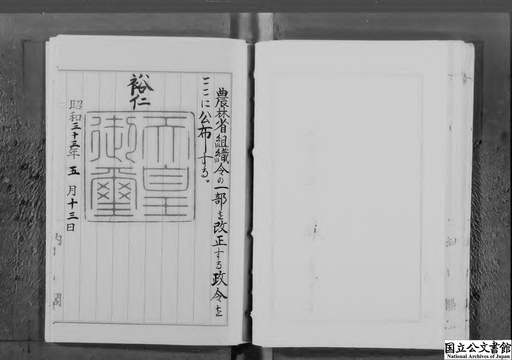 農林省組織令の一部を改正する政令を
ここに公布する。
裕仁
天皇
御璽
昭和三十三年五月十三日
内閣
国立公文書館
National Archives of Japan